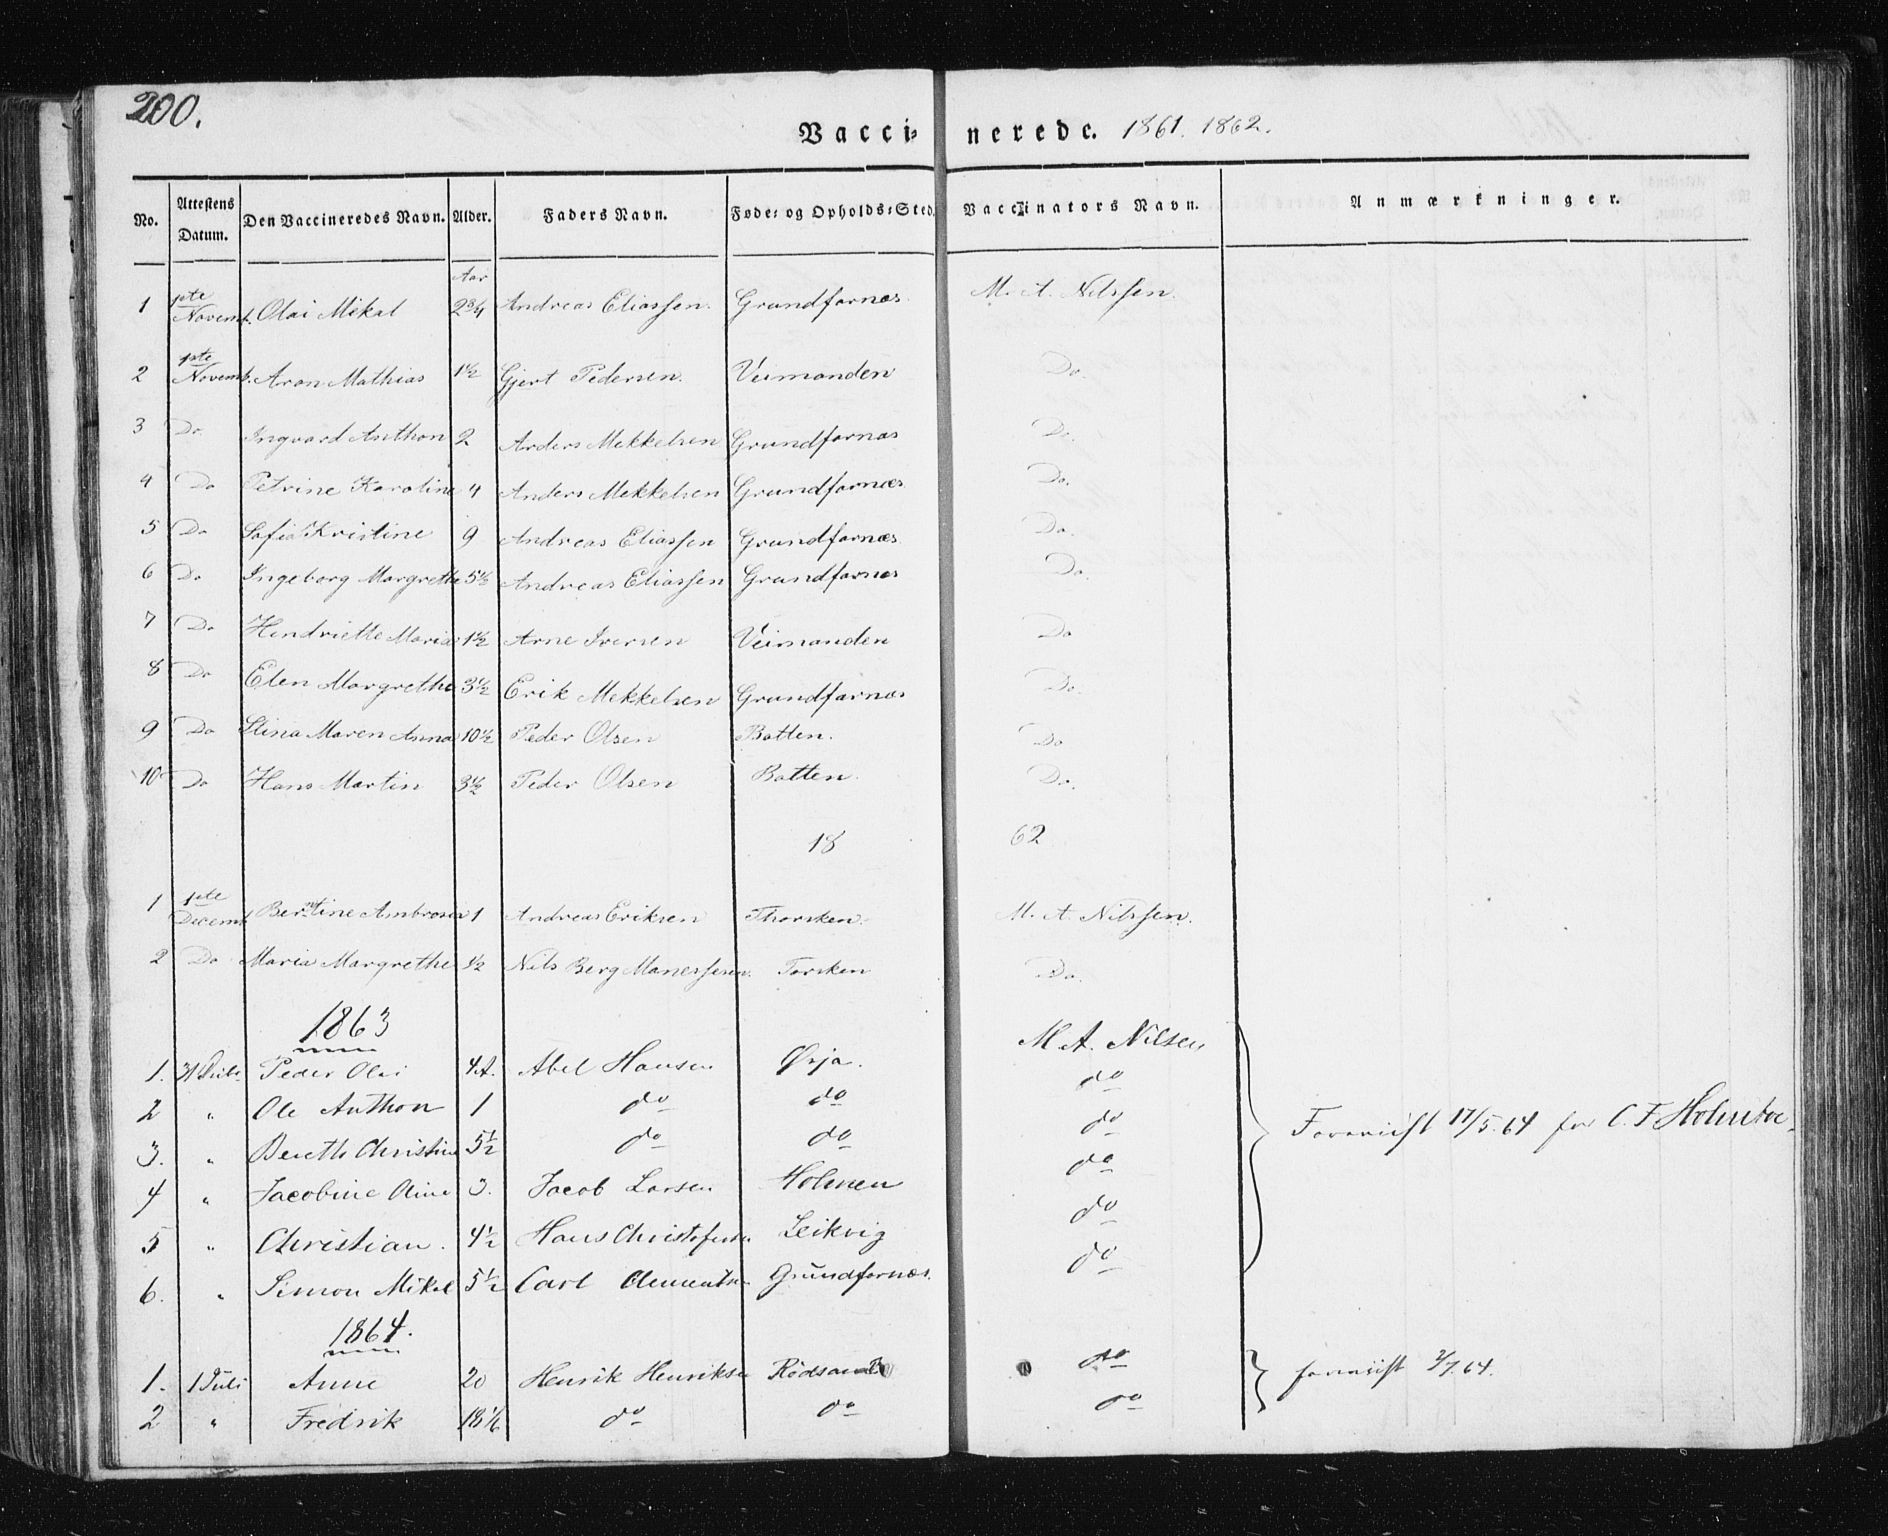 200.
Vaccinerede. 1861. 1862.
No. Attestens Datum. Den Vaccineredes Navn. Alder. Faders Navn. Føde- og Opholds-Sted. Vaccinators Navn. Anmærkninger.
Aar
1 1ste Novemb. Olai Mikal 2 3/4 Andreas Eliassen. Grundfarnæs. M. A. Nilssen.
2 1ste Novemb. Aron Mathias 1 1/2 Gjert Pedersen. Veimanden Do.
3 Do. Ingvard Anthon 2 Anders Mekkelsen Grundfarnæs Do.
4 Do Petrine Karoline 4 Anders Mekkelsen Grundfarnæs Do.
5 Do Sofia Kristine 9 Andreas Eliassen Grundfarnæs Do.
6 Do Ingeborg Margrethe 5 1/2 Andreas Eliassen Grundfarnæs Do.
7 Do Hendriette Maria 1 1/2 Arne Iversen Veimanden Do
8 Do Elen Margrethe 3 1/2 Erik Mekkelsen Grundfarnæs Do.
9 Do Stina Maren Anna 10 1/2 Peder Olsen Botten. Do
10 Do Hans Martin 3 1/2 Peder Olsen Botten. Do.
18 62
1 1ste Decemb. Berntine Ambrosia 1 Andreas Eriksen Thorsken. M. A. Nilssen.
2 Do Maria Margrethe 1/2 Nils Berg Manessesen. Torsken Do.
1863
1. Peder Olai 4 A. Abel Hansen Ørja. M. A. Nilsen
2 " Ole Anthon 1 do do do
3. " Bereth Christine 5 1/2 do do do
4 " Jacobine Oline 3. Jacob Larsen Holmen do
5 " Christian. 4 1/2 Hans Christofersen Leikvig do
6. " Simon Mikal 5 1/2 Carl Clementsen Grundfarnæs. do
17/5.64 C. F.
1864.
1. 1 Juli Anne 20 Henrik Henriksen Rödsand do
2 " Fredrik 18 1/6 do do do